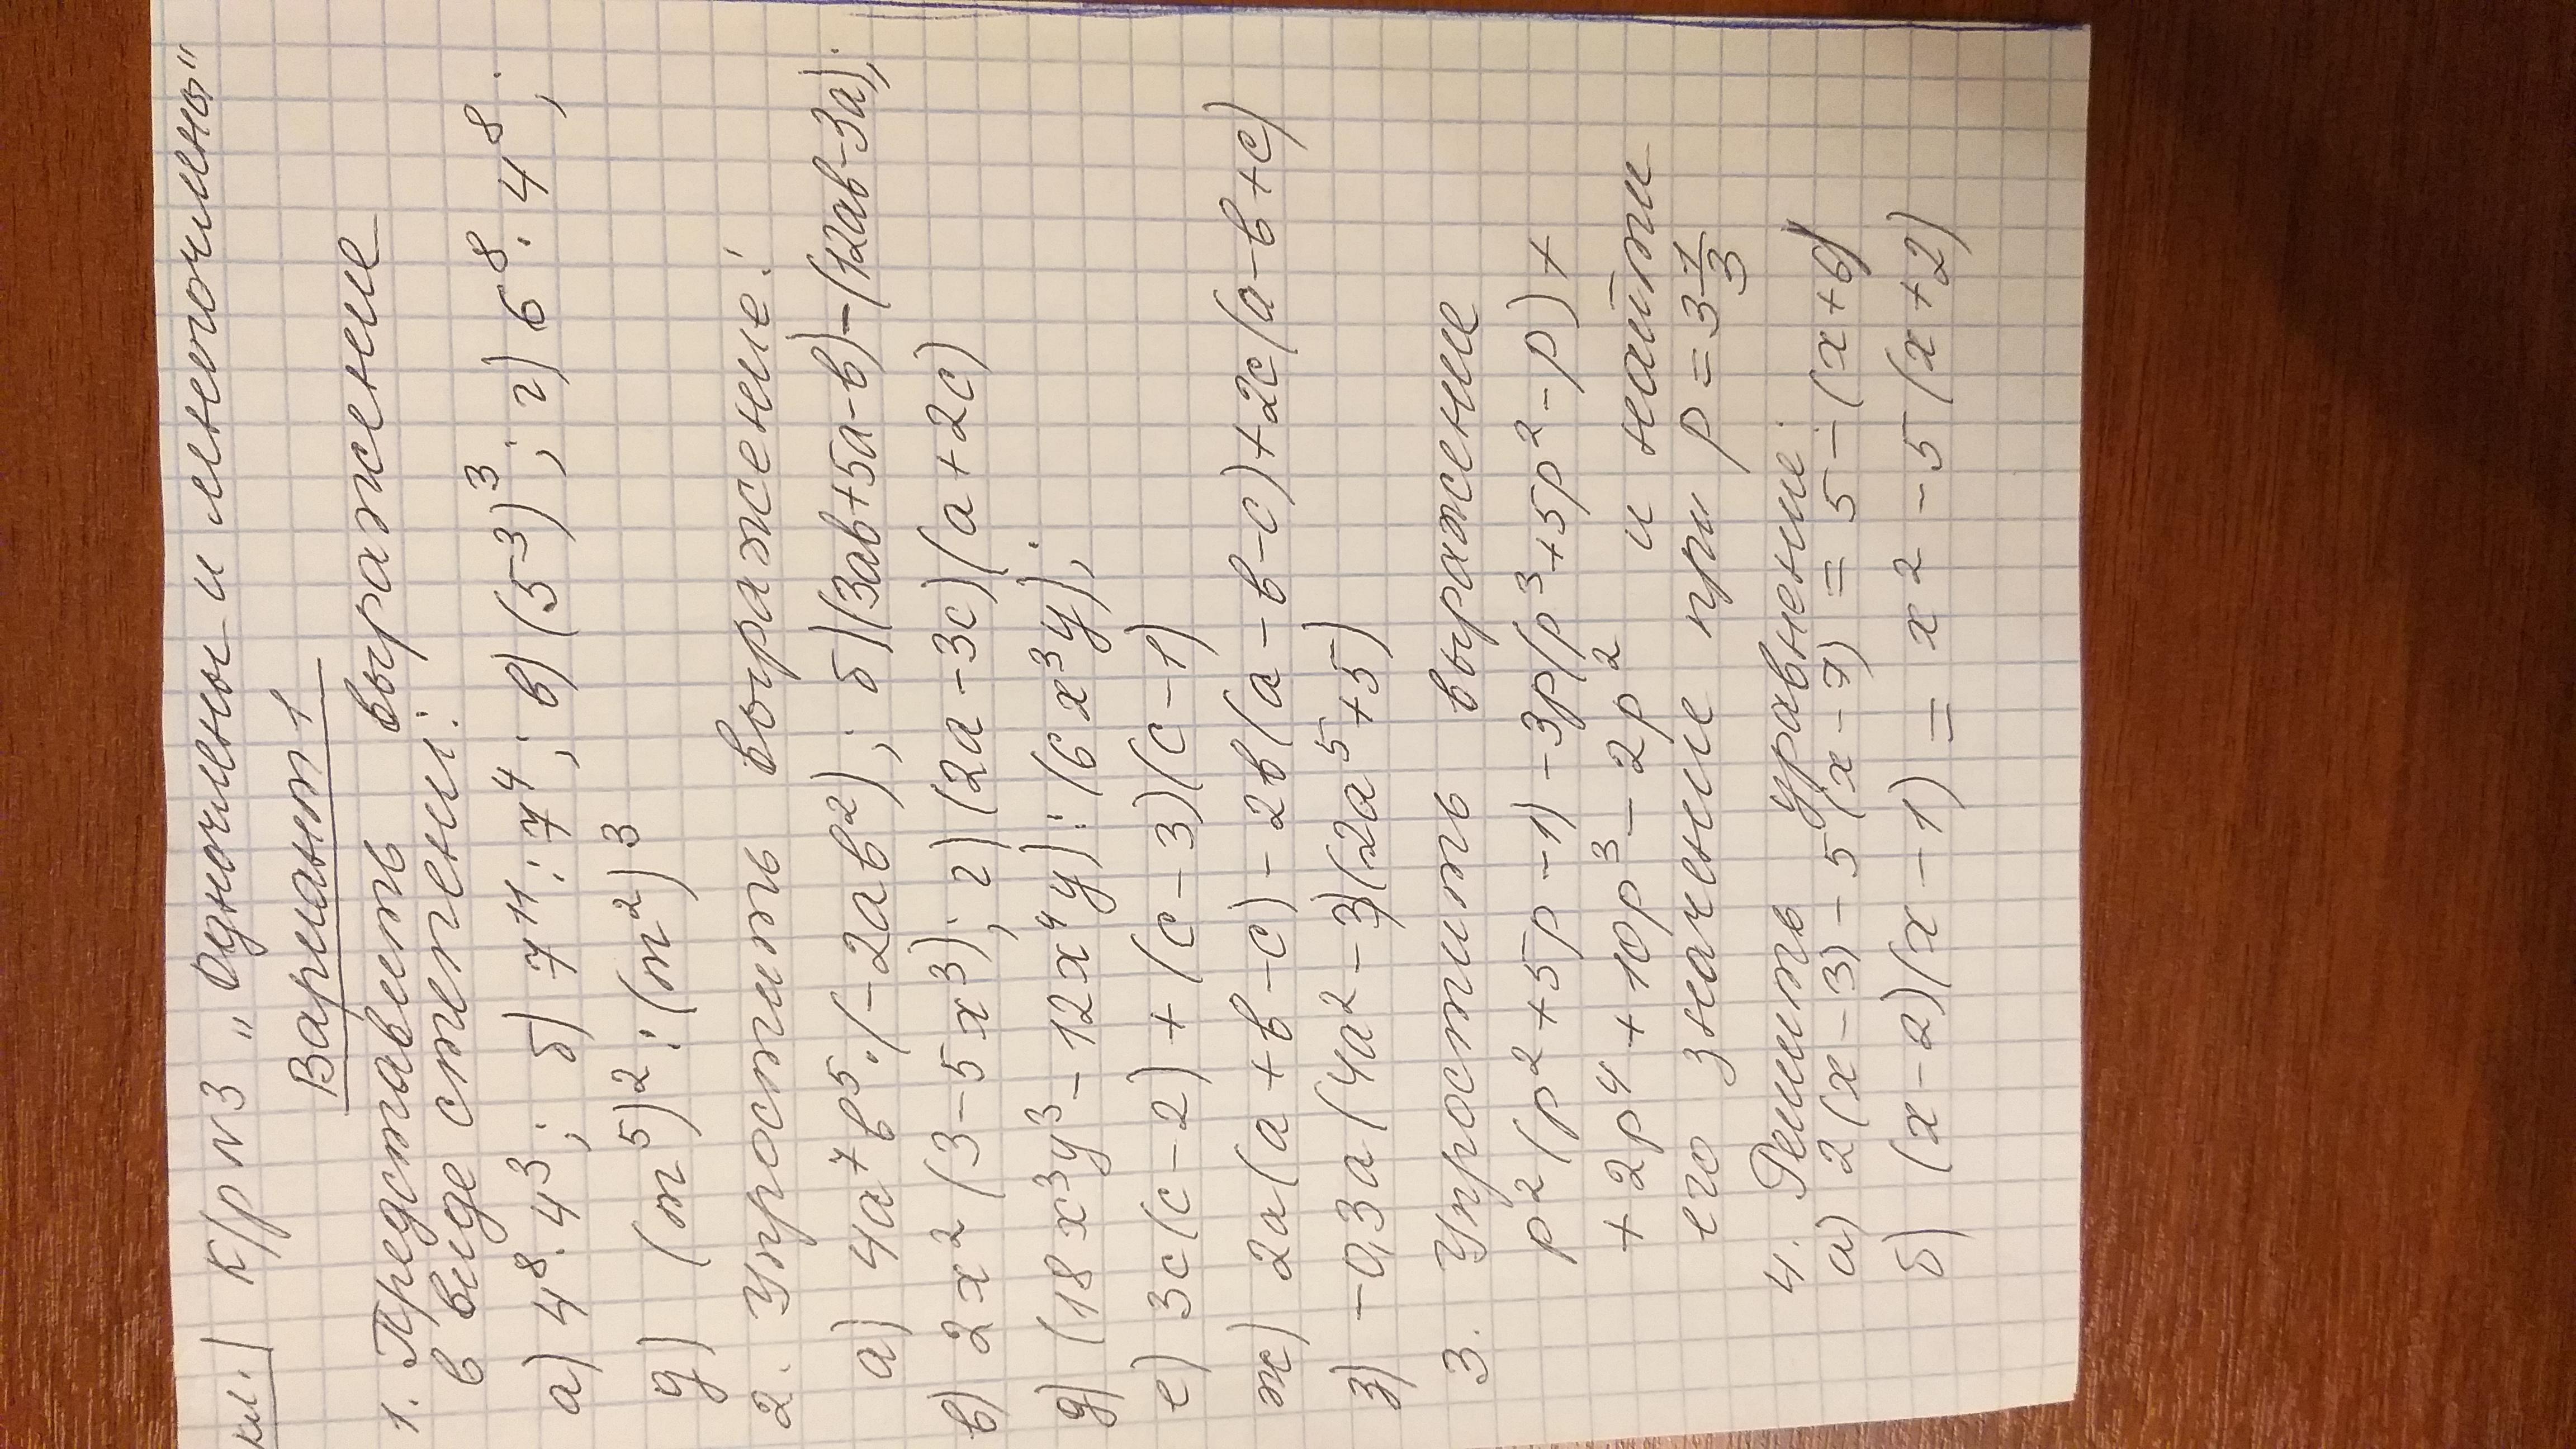 кл. К/р №3 „Одночлены и многочлены"
Вариант 1
1. Представить выражение
в виде степени:
а) 4⁸·4³; б) 7¹¹:7⁴; в) (5⁻³)³; г) 6⁸·4⁸;
д) (m⁵)²:(m²)³
2. Упростить выражение:
а) 4a⁷b⁵·(-2ab²); б) (3ab+5a-b)-(12ab-3a);
в) 2x²(3-5x³); г) (2a-3c)(a+2c)
д) (18x³y³-12x⁴y):(6x³y);
е) 3c(c-2)+(c-3)(c-1)
ж) 2a(a+b-c)-2b(a-b-c)+2c(a-b+c)
з) -0,3a(4a²-3)(2a⁵+5)
3. Упростить выражение
p²(p²+5p-1)-3p(p³+5p²-p)+
+2p⁴+10p³-2p² и найти
его значение при p=3 1/3
4. Решить уравнение:
а) 2(x-3)-5(x-7)=5-(x+6)
б) (x-2)(x-1)=x²-5(x+2)